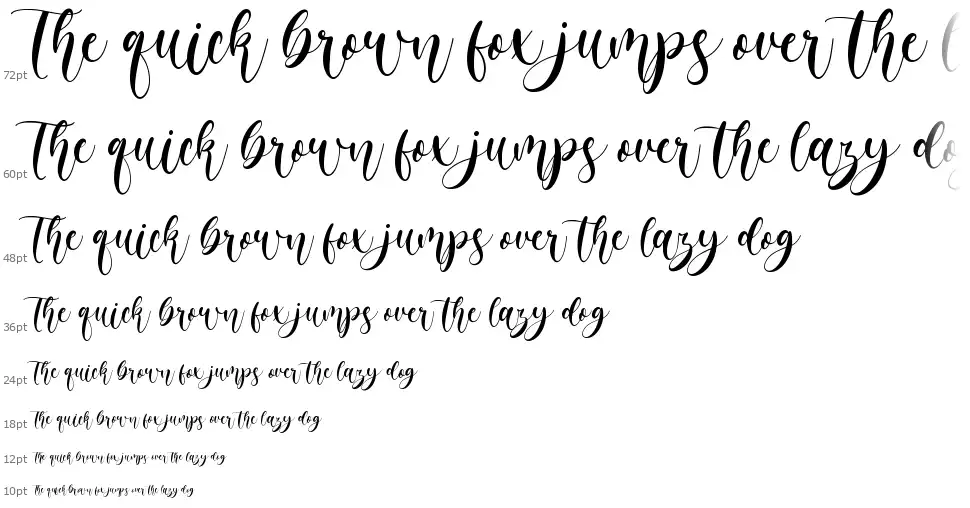 72pt The quick brown fox jumps over the l
60pt The quick brown fox jumps over the lazy do
48pt The quick brown fox jumps over the lazy dog
36pt The quick brown fox jumps over the lazy dog
24pt The quick brown fox jumps over the lazy dog
18pt The quick brown fox jumps over the lazy dog
12pt The quick brown fox jumps over the lazy dog
10pt The quick brown fox jumps over the lazy dog